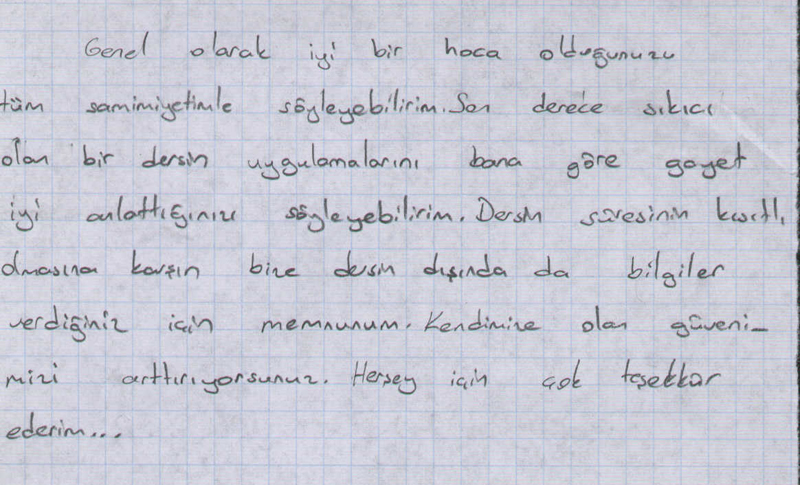 Genel olarak iyi bir hoca olduğunuzu
tüm samimiyetimle söyleyebilirim. Son derece sıkıcı
olan bir dersin uygulamalarını bana göre gayet
iyi anlattığınızı söyleyebilirim. Dersin süresinin kısıtlı
olmasına karşın bize dersin dışında da bilgiler
verdiğiniz için memnunum. Kendimize olan güveni-
mizi arttırıyorsunuz. Herşey için çok teşekkür
ederim...